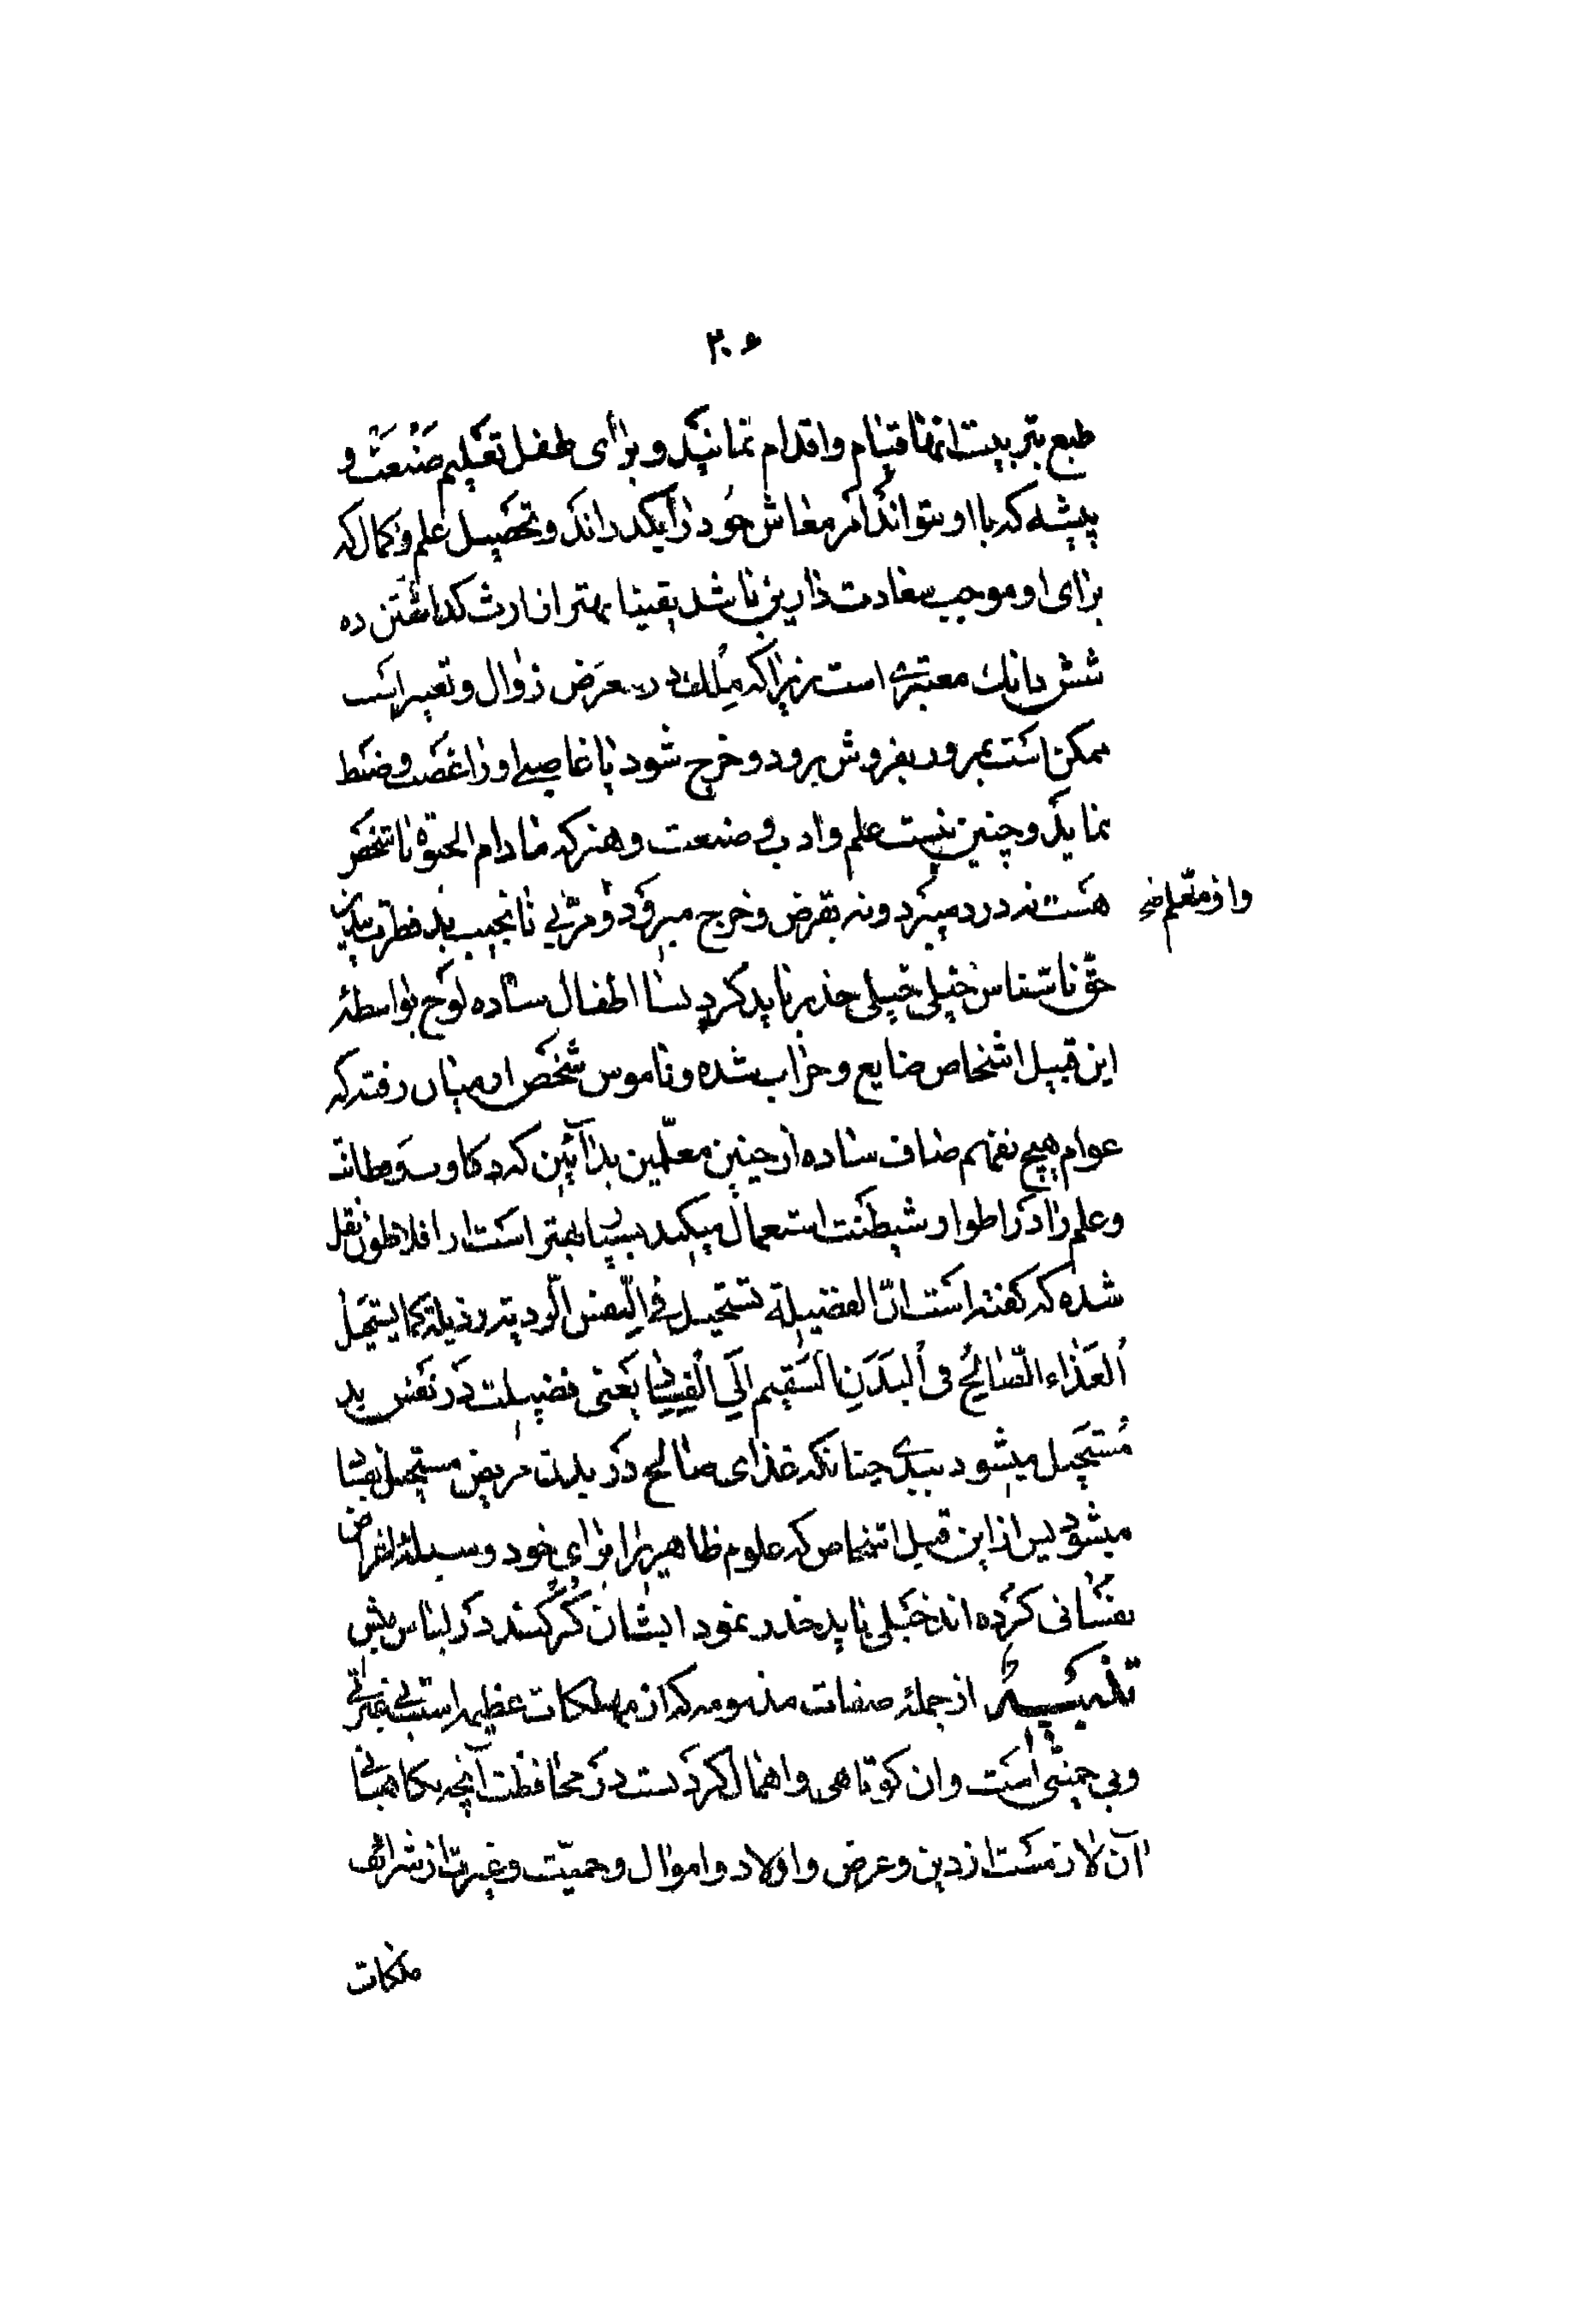 ۳۰۶
طبع بتربیت انها قیام واقدام نمانید و برای طفل تعلیم صنعت و
پیشه که با او بتواند امر معاش خود را بگذراند و تحصیل علم و کمال که
برای او موجب سعادت دارین باشد یقینا بهتر از ارث گذاشتن ده
شش دانک معتبری است زیرا که ملک در معرض زوال و تغییر است
ممکن است بمرور بفروش برود و خرج شود یا غاصبی او را غصب و ضبط
نماید و چنین نیست علم و ادب و صنعت و هنر که مادام الحیوة با شخص
هست نه دزد میبرد و نه بقرض و خرج میرود و مربی نانجیب بد فطرت
واز معلم
حق ناشناس خیلی خیلی حذر باید کرد بسا اطفال ساده لوح بواسطه
این قبیل اشخاص ضایع و خراب شده و ناموس شخص از میان رفته که
عوام هیچ نفهم صاف ساده از چنین معلمین بد آئین که
و علم را در اطوار شیطنت استعمال میکند بسیار بهتر است از افلاطون نقل
شده که گفته است انّ الفضیلة تستحیل فی النفس الردیة رذیلة کما یستحیل
الغذاء الصالح فی البدن السقیم الی الفساد یعنی فضیلت در نفس بد
مستحیل میشود ببدی چنانکه غذای صالح در بدن مریض مستحیل بفساد
میشود پس از این قبیل اشخاص که علوم ظاهریه را برای خود وسیله اغراض
نفسانی کرده اند خیلی باید حذر نمود ایشان گرگند در لباس میش
تنبیه از جمله صفات مذمومه که از مهلکات عظیمه است بی غیرتی
و بی حمیتی است وان کوتاهی و اهمال کردنست در محافظت آنچه نگاهبانی
آن لازمست از دین و عرض و اولاد و اموال و حمیت و غیرت از شرائف
ملکات